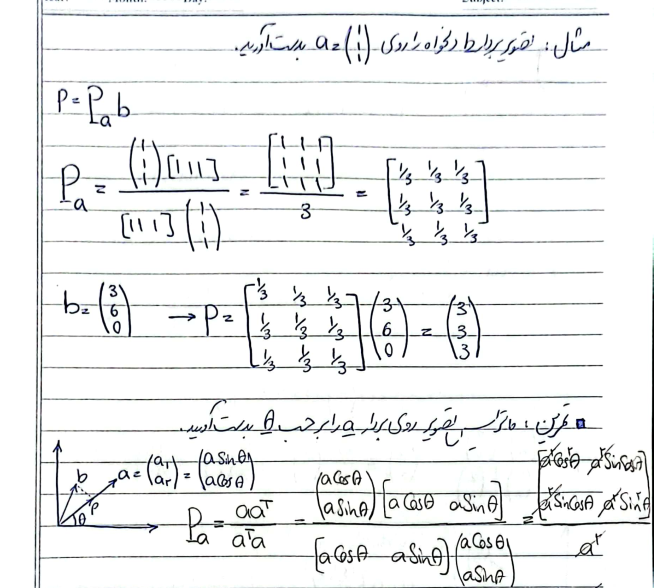 مثال : تصویر بردار b دلخواه را روی a = (1 1 1) بدست آورید.
P = P_a b
P_a = (1 1 1) [1 1 1] / [1 1 1] (1 1 1) = [1 1 1 ; 1 1 1 ; 1 1 1] / 3 = [1/3 1/3 1/3 ; 1/3 1/3 1/3 ; 1/3 1/3 1/3]
b = (3 6 0) → P = [1/3 1/3 1/3 ; 1/3 1/3 1/3 ; 1/3 1/3 1/3] (3 6 0) = (3 3 3)
تمرین : ماتریس تصویر روی بردار a را برحسب θ بدست آورید.
b a = (a₁ a₂) = (a Sinθ a Cosθ)
P θ
P_a = aaᵀ / aᵀa = (a Cosθ a Sinθ) [a Cosθ a Sinθ] / [a Cosθ a Sinθ] (a Cosθ a Sinθ) = [a² Cos²θ a² Sin Cosθ ; a² Sin Cosθ a² Sin²θ] / a²